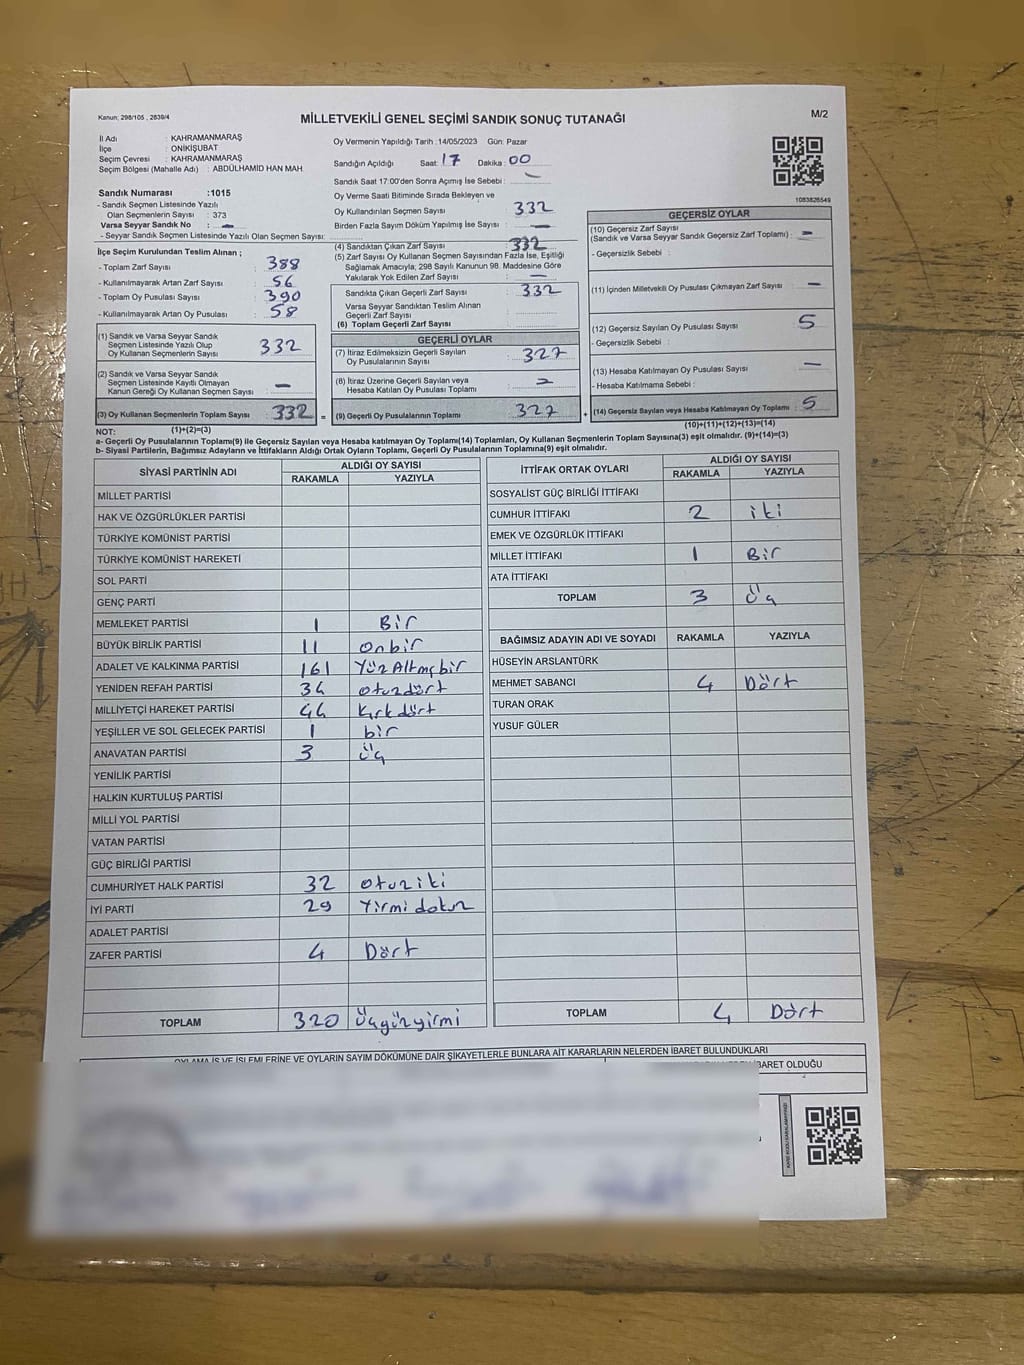 Kanun: 298/105 , 2839/4
MİLLETVEKİLİ GENEL SEÇİMİ SANDIK SONUÇ TUTANAĞI
M/2
İl Adı : KAHRAMANMARAŞ
İlçe : ONİKİŞUBAT
Seçim Çevresi : KAHRAMANMARAŞ
Seçim Bölgesi (Mahalle Adı) : ABDÜLHAMİD HAN MAH.
Sandık Numarası :1015
- Sandık Seçmen Listesinde Yazılı
Olan Seçmenlerin Sayısı : 373
Varsa Seyyar Sandık No : -
- Seyyar Sandık Seçmen Listesinde Yazılı Olan Seçmen Sayısı:
İlçe Seçim Kurulundan Teslim Alınan ;
- Toplam Zarf Sayısı : 388
- Kullanılmayarak Artan Zarf Sayısı : 56
- Toplam Oy Pusulası Sayısı : 390
- Kullanılmayarak Artan Oy Pusulası : 58
(1) Sandık ve Varsa Seyyar Sandık
Seçmen Listesinde Yazılı Olup
Oy Kullanan Seçmenlerin Sayısı : 332
(2) Sandık ve Varsa Seyyar Sandık
Seçmen Listesinde Kayıtlı Olmayan
Kanun Gereği Oy Kullanan Seçmen Sayısı : -
(3) Oy Kullanan Seçmenlerin Toplam Sayısı : 332 =
Oy Vermenin Yapıldığı Tarih :14/05/2023 Gün: Pazar
Sandığın Açıldığı Saat: 17 Dakika: 00
Sandık Saat 17:00'den Sonra Açımış İse Sebebi : -
Oy Verme Saati Bitiminde Sırada Bekleyen ve
Oy Kullandırılan Seçmen Sayısı : 332
Birden Fazla Sayım Döküm Yapılmış İse Sayısı : -
(4) Sandıktan Çıkan Zarf Sayısı : 332
(5) Zarf Sayısı Oy Kullanan Seçmen Sayısından Fazla İse, Eşitliği
Sağlamak Amacıyla, 298 Sayılı Kanunun 98. Maddesine Göre
Yakılarak Yok Edilen Zarf Sayısı : -
Sandıkta Çıkan Geçerli Zarf Sayısı : 332
Varsa Seyyar Sandıktan Teslim Alınan
Geçerli Zarf Sayısı :
(6) Toplam Geçerli Zarf Sayısı :
GEÇERLİ OYLAR
(7) İtiraz Edilmeksizin Geçerli Sayılan
Oy Pusulalarının Sayısı : 327
(8) İtiraz Üzerine Geçerli Sayılan veya
Hesaba Katılan Oy Pusulası Toplamı : -
(9) Geçerli Oy Pusulalarının Toplamı : 327 +
1083826549
GEÇERSİZ OYLAR
(10) Geçersiz Zarf Sayısı
(Sandık ve Varsa Seyyar Sandık Geçersiz Zarf Toplamı) : -
- Geçersizlik Sebebi :
(11) İçinden Milletvekili Oy Pusulası Çıkmayan Zarf Sayısı : -
(12) Geçersiz Sayılan Oy Pusulası Sayısı : 5
- Geçersizlik Sebebi :
(13) Hesaba Katılmayan Oy Pusulası Sayısı : -
- Hesaba Katılmama Sebebi :
(14) Geçersiz Sayılan veya Hesaba Katılmayan Oy Toplamı : 5
NOT: (1)+(2)=(3) (10)+(11)+(12)+(13)=(14)
a- Geçerli Oy Pusulalarının Toplamı(9) ile Geçersiz Sayılan veya Hesaba katılmayan Oy Toplamı(14) Toplamları, Oy Kullanan Seçmenlerin Toplam Sayısına(3) eşit olmalıdır. (9)+(14)=(3)
b- Siyasi Partilerin, Bağımsız Adayların ve İttifakların Aldığı Ortak Oyların Toplamı, Geçerli Oy Pusulalarının Toplamına(9) eşit olmalıdır.
SİYASİ PARTİNİN ADI ALDIĞI OY SAYISI
RAKAMLA YAZIYLA
MİLLET PARTİSİ
HAK VE ÖZGÜRLÜKLER PARTİSİ
TÜRKİYE KOMÜNİST PARTİSİ
TÜRKİYE KOMÜNİST HAREKETİ
SOL PARTİ
GENÇ PARTİ
MEMLEKET PARTİSİ 1 Bir
BÜYÜK BİRLİK PARTİSİ 11 onbir
ADALET VE KALKINMA PARTİSİ 161 Yüz Altmışbir
YENİDEN REFAH PARTİSİ 34 otuzdört
MİLLİYETÇİ HAREKET PARTİSİ 44 kırkdört
YEŞİLLER VE SOL GELECEK PARTİSİ 1 bir
ANAVATAN PARTİSİ 3 üç
YENİLİK PARTİSİ
HALKIN KURTULUŞ PARTİSİ
MİLLİ YOL PARTİSİ
VATAN PARTİSİ
GÜÇ BİRLİĞİ PARTİSİ
CUMHURİYET HALK PARTİSİ 32 otuziki
İYİ PARTİ 29 Yirmi dokuz
ADALET PARTİSİ
ZAFER PARTİSİ 4 Dört
TOPLAM 320 üçyüzyirmi
İTTİFAK ORTAK OYLARI ALDIĞI OY SAYISI
RAKAMLA YAZIYLA
SOSYALİST GÜÇ BİRLİĞİ İTTİFAKI
CUMHUR İTTİFAKI 2 iki
EMEK VE ÖZGÜRLÜK İTTİFAKI
MİLLET İTTİFAKI 1 Bir
ATA İTTİFAKI
TOPLAM 3 üç
BAĞIMSIZ ADAYIN ADI VE SOYADI RAKAMLA YAZIYLA
HÜSEYİN ARSLANTÜRK
MEHMET SABANCI 4 Dört
TURAN ORAK
YUSUF GÜLER
TOPLAM 4 Dört
OYLAMA İŞ VE İŞLEMLERİNE VE OYLARIN SAYIM DÖKÜMÜNE DAİR ŞİKAYETLERLE BUNLARA AİT KARARLARIN NELERDEN İBARET BULUNDUKLARI
BARET OLDUĞU